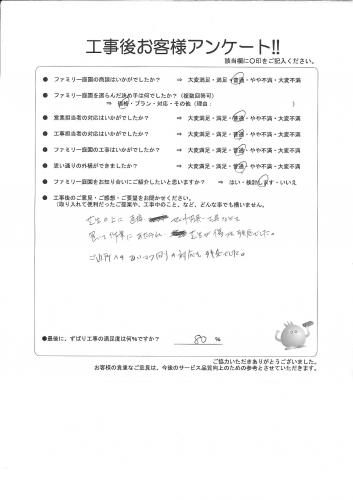 工事後お客様アンケート!!
該当欄に〇印をご記入ください。
● ファミリー庭園の商談はいかがでしたか? ⇒ 大変満足・満足・普通・やや不満・大変不満
● ファミリー庭園を選らんだ決め手は何でしたか?(複数回答可)
⇒ 価格・プラン・対応・その他(理由: )
● 営業担当者の対応はいかがでしたか? ⇒ 大変満足・満足・普通・やや不満・大変不満
● 工事担当者の対応はいかがでしたか? ⇒ 大変満足・満足・普通・やや不満・大変不満
● ファミリー庭園の工事はいかがでしたか? ⇒ 大変満足・満足・普通・やや不満・大変不満
● 思い通りの外構ができましたか? ⇒ 大変満足・満足・普通・やや不満・大変不満
● ファミリー庭園をお知り合いにご紹介したいと思いますか? ⇒ はい・検討します・いいえ
● 工事後のご意見・ご感想・ご要望をお聞かせください。
(取り入れて便利だったご提案や、工事中のこと、など、どんな事でも構いません。
芝生の上に 直接
置いて作業 芝生が傷つき 残念でした。
ご近所への あいさつ回りの対応も 残念でした。
●最後に、ずばり工事の満足度は何%ですか? 80 %
ご協力いただきありがとうございました。
お客様の貴重なご意見は、今後のサービス品質向上のための参考とさせていただきます。